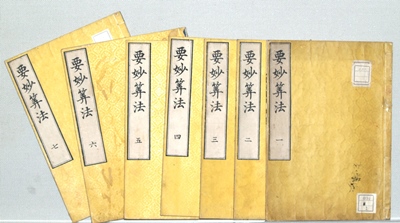 要妙算法 一
要妙算法 二
要妙算法 三
要妙算法 四
要妙算法 五
要妙算法 六
要妙算法 七